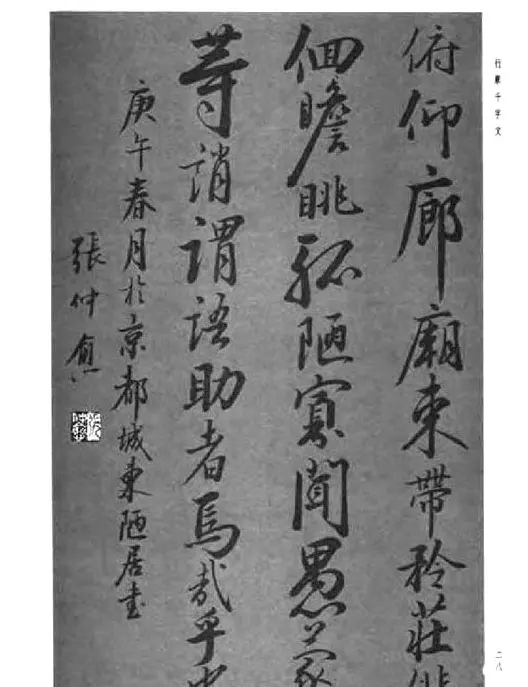 行書千字文
俯仰廊廟束帶矜莊徘
徊瞻眺孤陋寡聞愚蒙
等誚謂語助者焉哉乎也
庚午春月於京都城東陋居書
張仲愈
二八